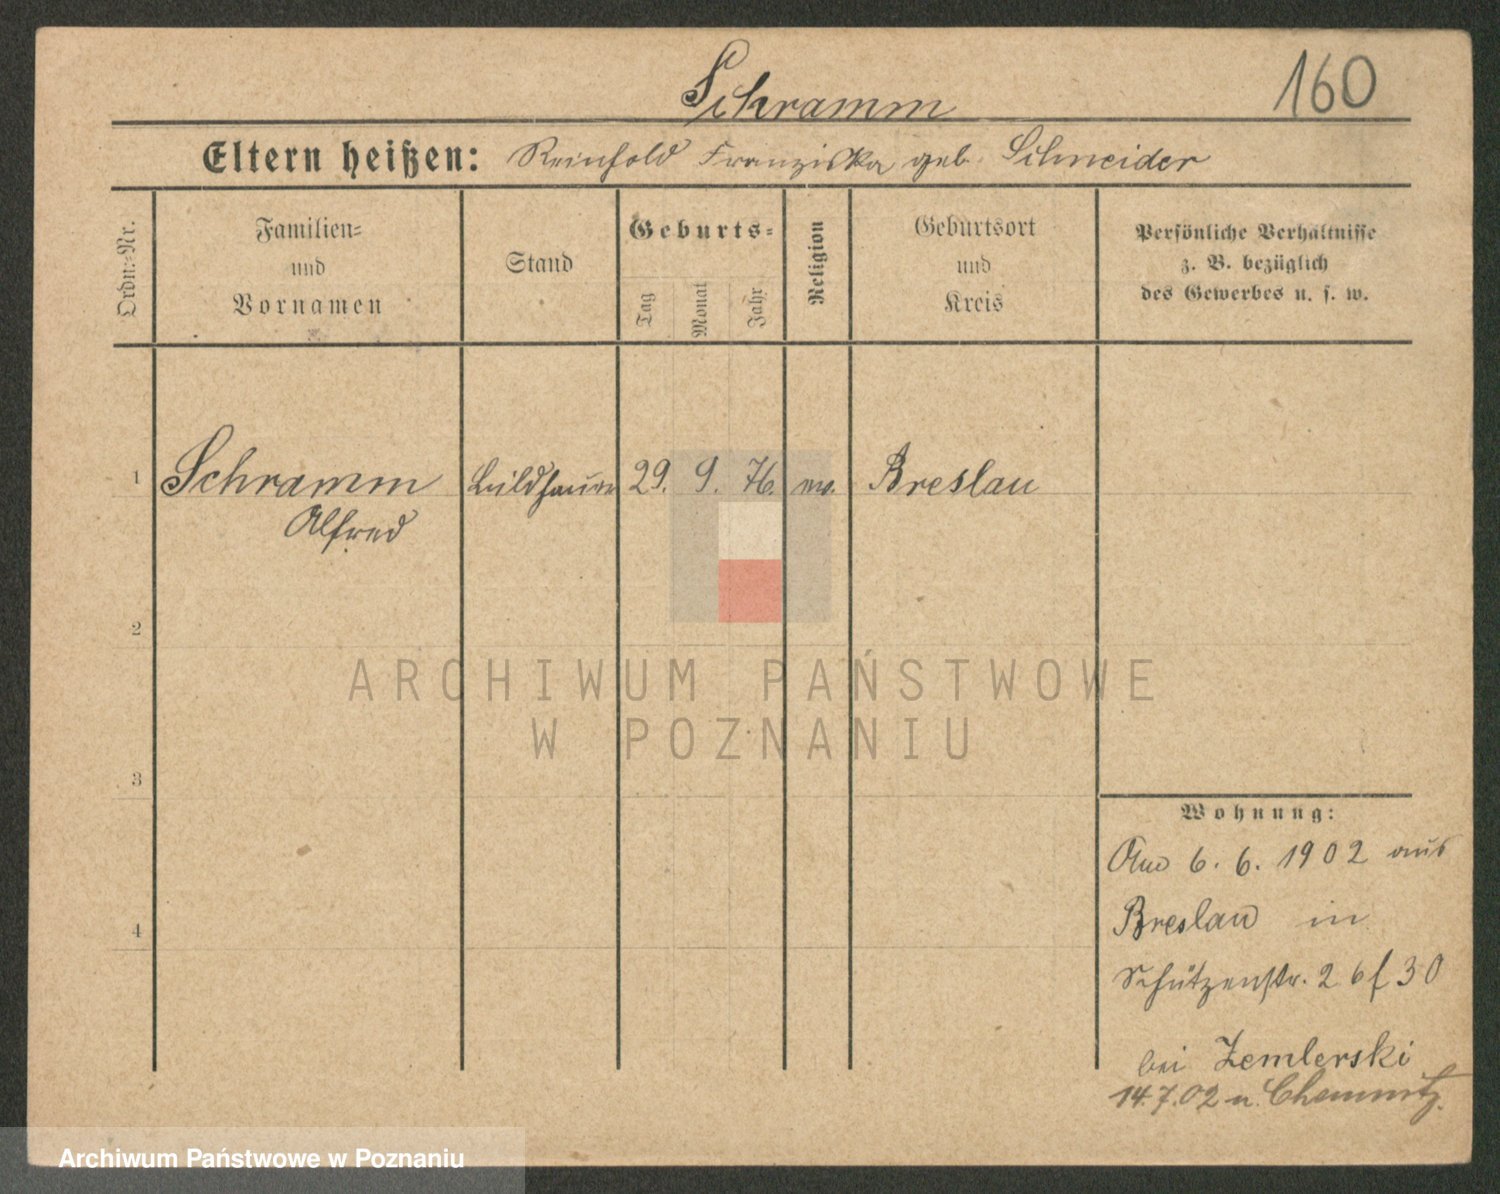 Schramm
160
Eltern heißen: Reinhold Franziska geb. Schneider
Ordn.=Nr.
Familien=
und
Vornamen
Stand
Geburts=
Tag
Monat
Jahr
Religion
Geburtsort
und
Kreis
Persönliche Verhältnisse
z. B. bezüglich
des Gewerbes u. s. w.
1 Schramm Bildhauer 29. 9. 76. ev. Breslau
Alfred
2
3
4
ARCHIWUM PAŃSTWOWE
W POZNANIU
Wohnung:
6. 6. 1902 aus
Breslau in
Schützenstr. 30
bei Zemlerski
14.7.02 n. Chemnitz.
Archiwum Państwowe w Poznaniu